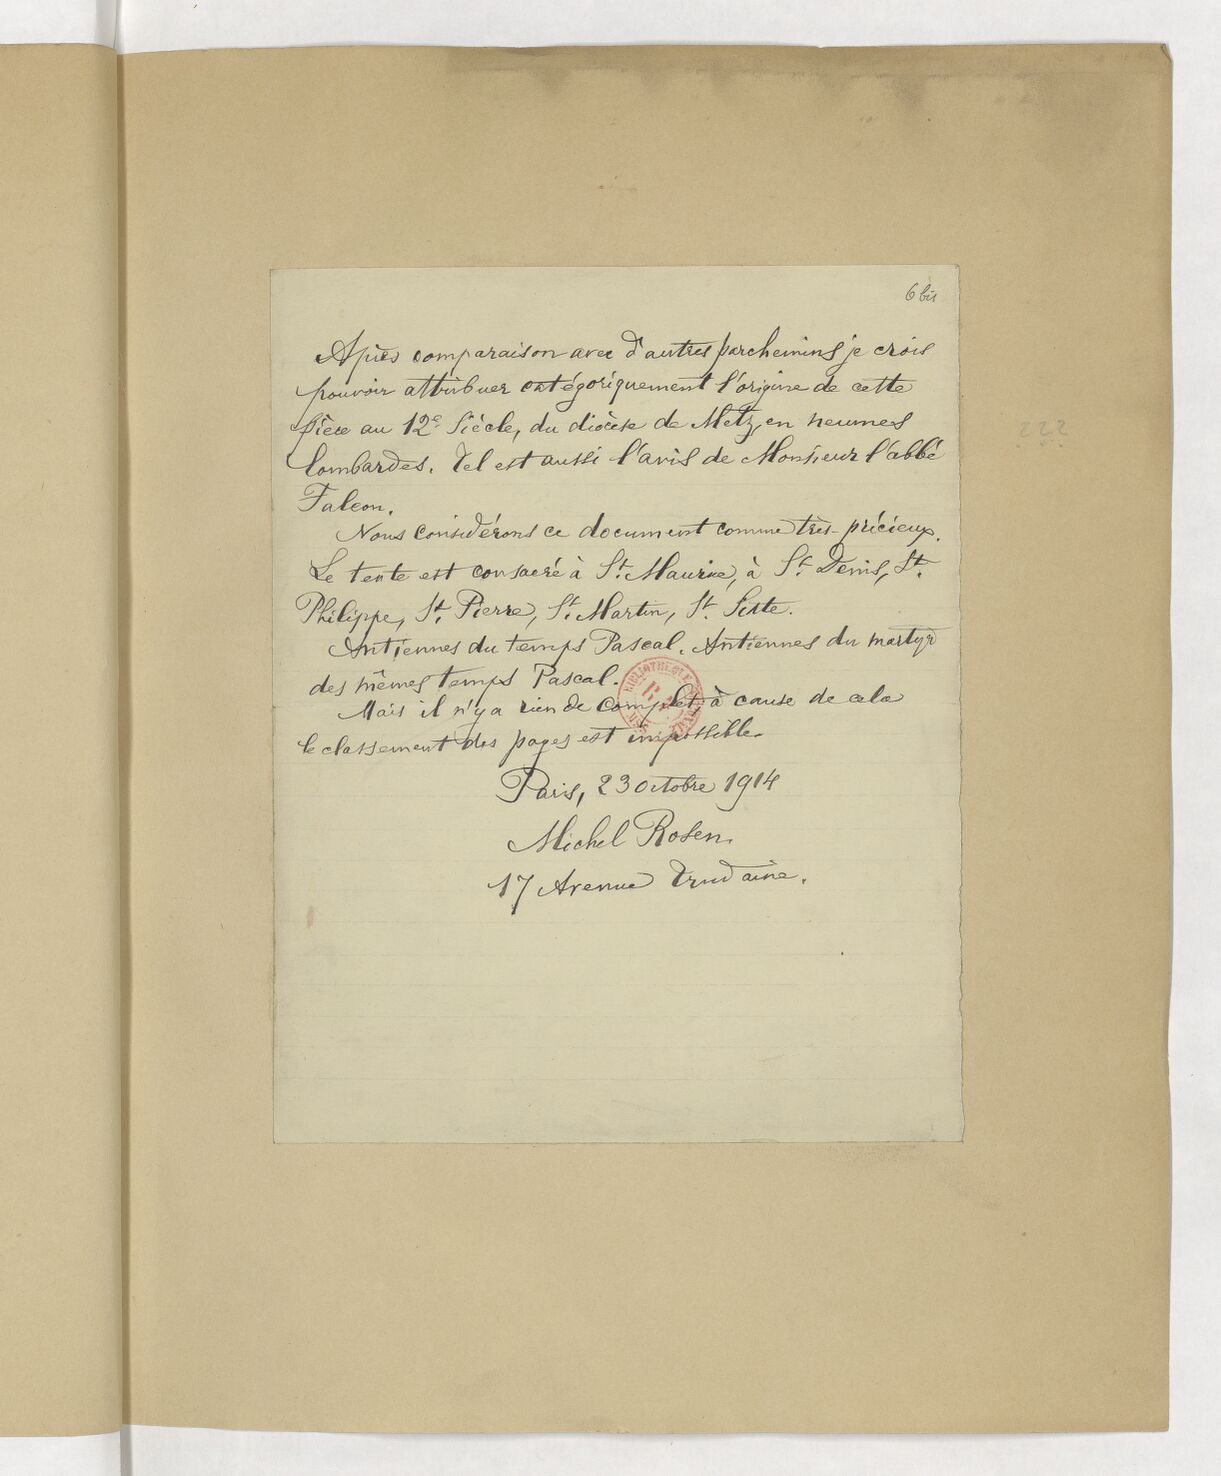 6 bis
Après comparaison avec d'autres parchemins je crois
pouvoir attribuer catégoriquement l'origine de cette
pièce au 12e Siècle, du diocèse de Metz, en neumes
lombardes. Tel est aussi l'avis de Monsieur l'abbé
Falcon.
Nous considérons ce document comme très-précieux.
Le texte est consacré à St. Maurice, à St. Denis, St.
Philippe, St. Pierre, St. Martin, St. Sixte.
Antiennes du temps Pascal. Antiennes du martyr
des mêmes temps Pascal.
Mais il n'y a rien de complet, à cause de cela
le classement des pages est impossible.
Paris, 23 octobre 1914
Michel Rosen.
17 Avenue Trudaine.
???